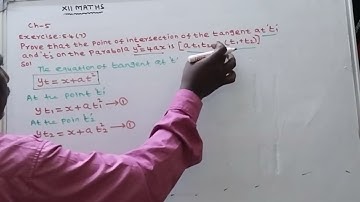 XII MATHS
Ch-5
Exercise: 5.4 (7)
Prove that the point of intersection of the tangent at 't₁'
and 't₂' on the Parabola y²=4ax is [at₁t₂, (t₁+t₂)]
Sol
The equation of tangent at 't'
yt = x+at²
At the point 't₁'
yt₁ = x+at₁² → ①
At the point 't₂'
yt₂ = x+at₂² → ①